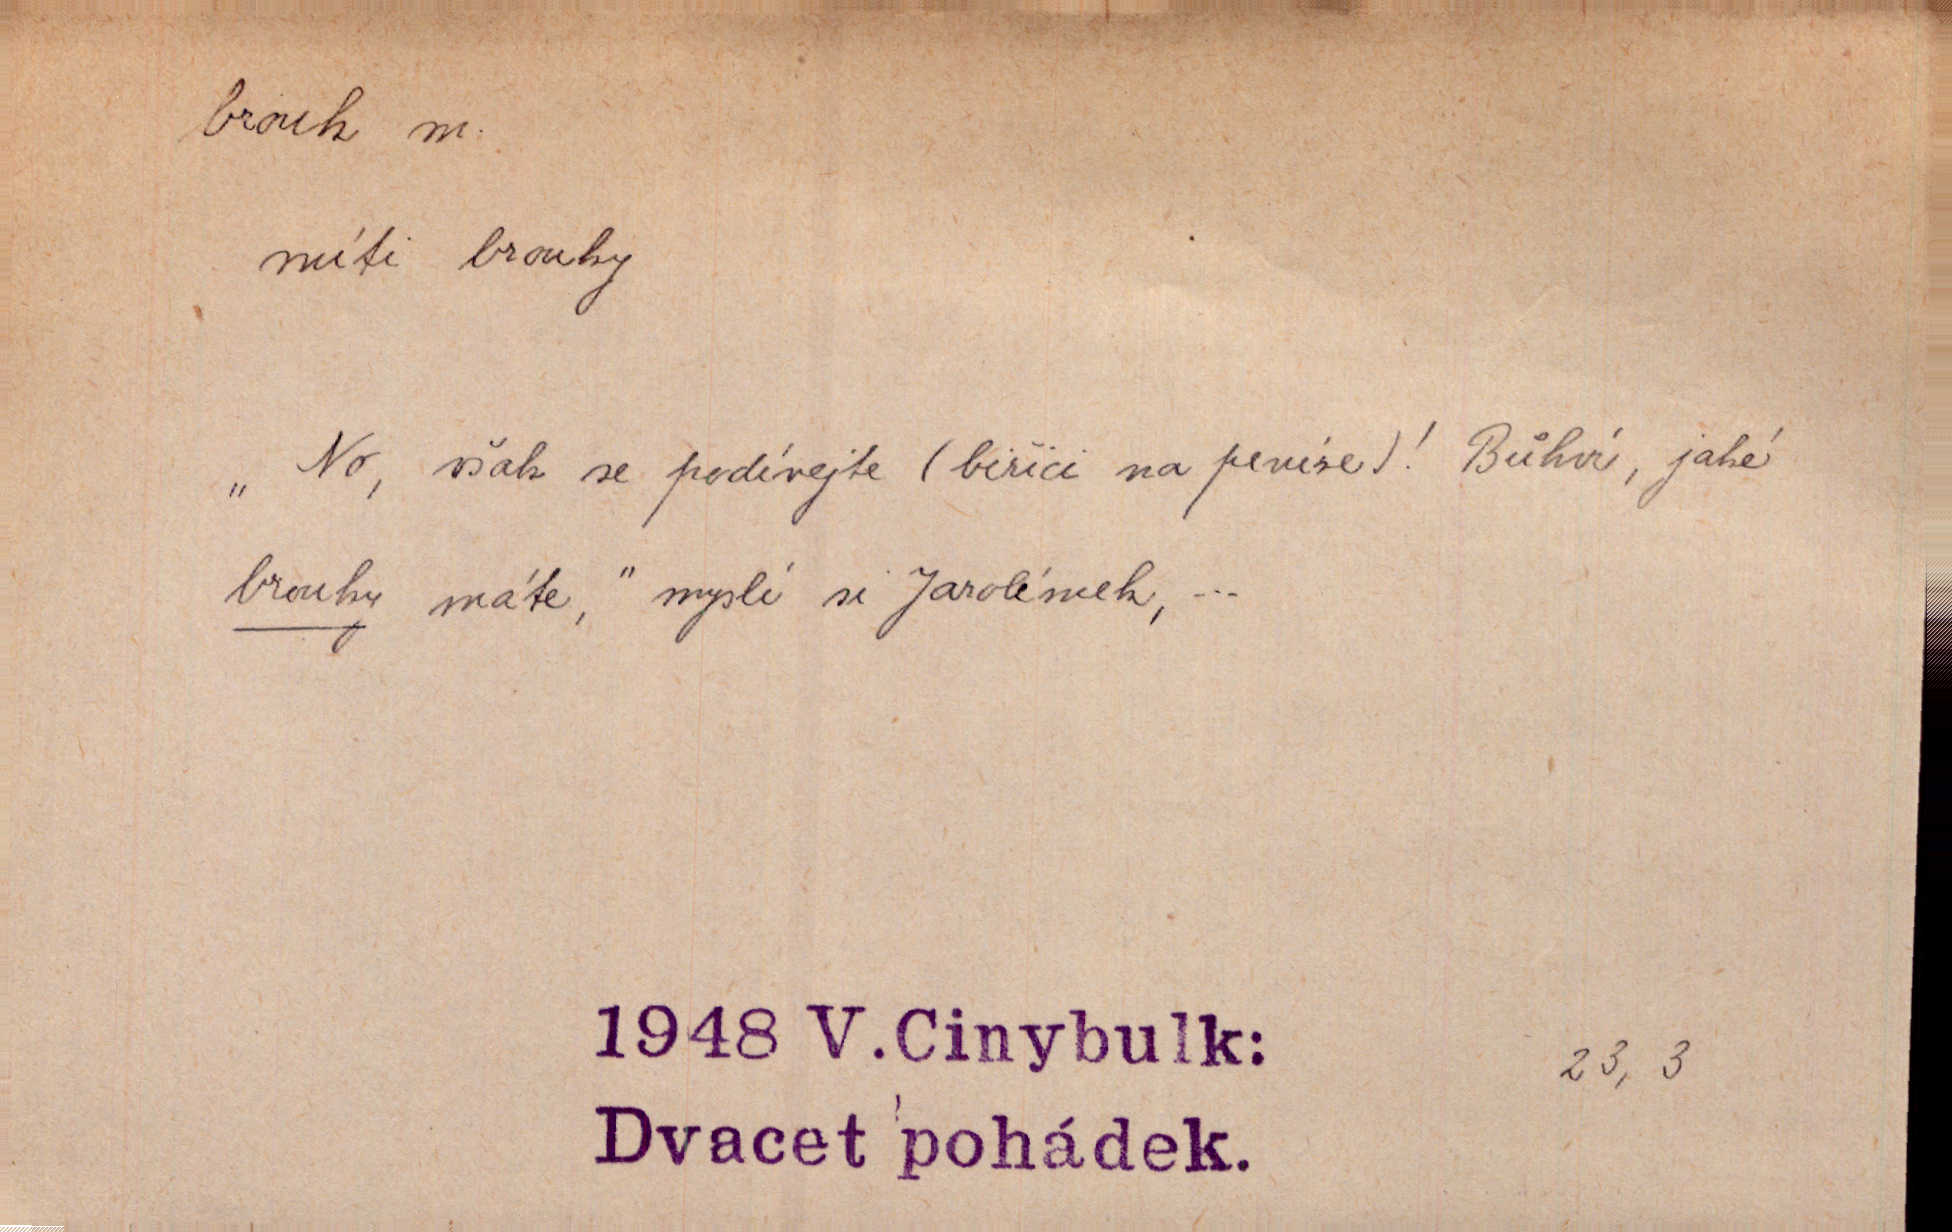 brouk m.
míti brouky
„No, však se podívejte (biřici na peníze)! Bůhví, jaké
brouky máte," myslí si Jarolímek, ...
1948 V.Cinybulk:
23, 3
Dvacet pohádek.